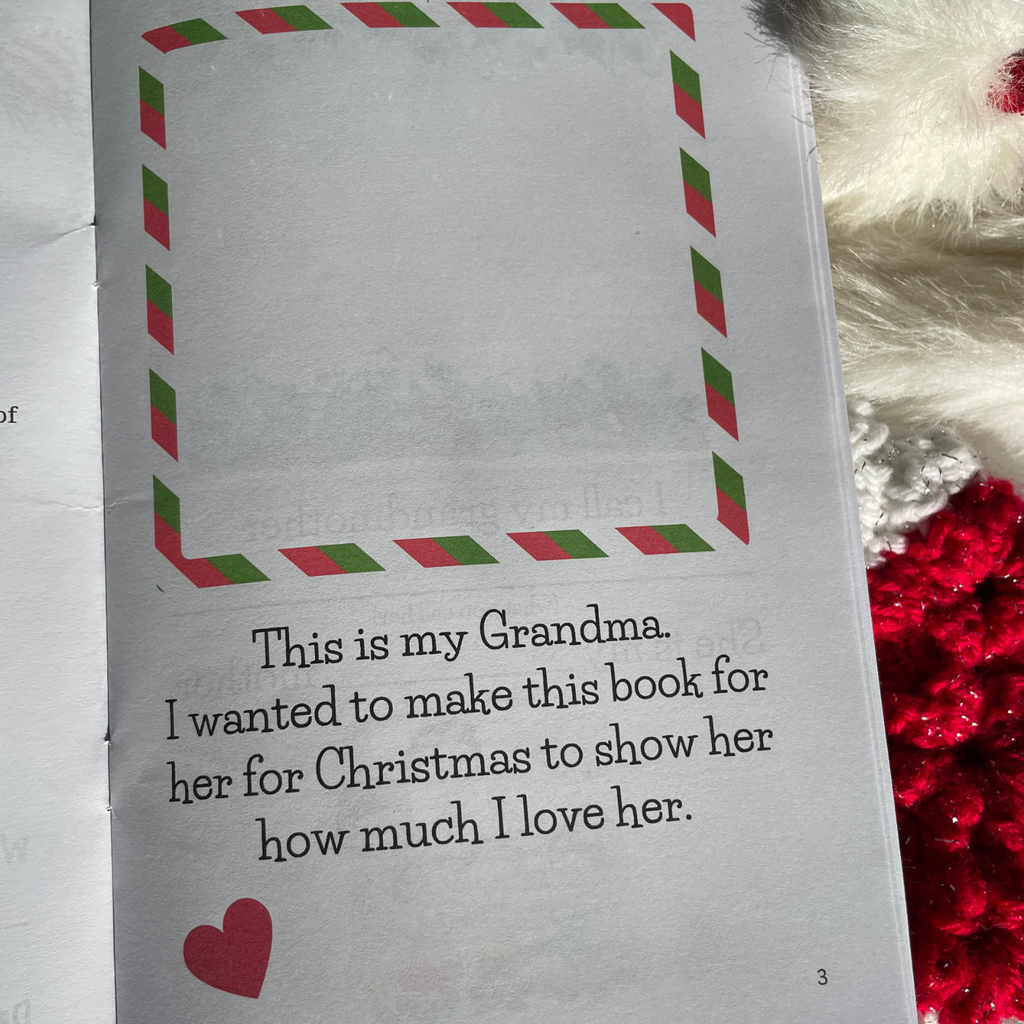 of
This is my Grandma.
I wanted to make this book for
her for Christmas to show her
how much I love her.
3